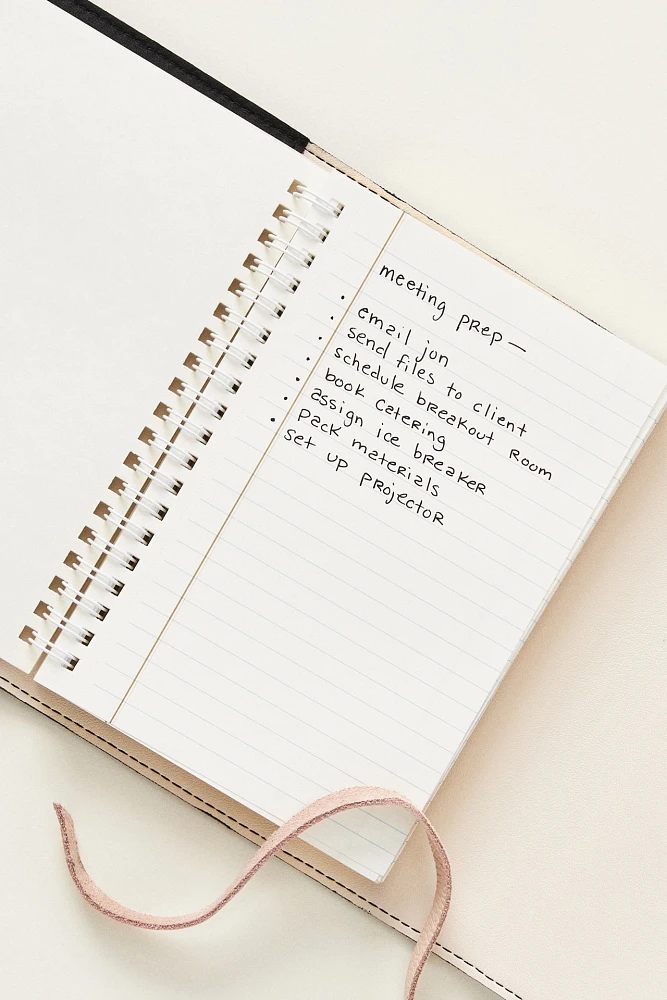 meeting prep —
• email jon
• send files to client
• schedule breakout room
• book catering
• assign ice breaker
• pack materials
• set up projector